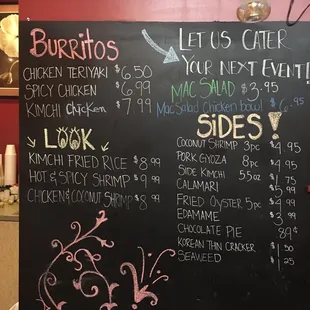 Burritos
CHICKEN TERIYAKI $6.50
SPICY CHICKEN $6.99
KIMCHI CHICKEN $7.99
LOOK
KIMCHI FRIED RICE $8.99
HOT & SPICY SHRIMP $9.99
CHICKEN & COCONUT SHRIMP $8.99
LET US CATER
YOUR NEXT EVENT!
MAC SALAD $3.95
MAC SALAD Chicken bowl $6.95
SIDES!
COCONUT SHRIMP 3pc $4.95
PORK GYOZA 8pc $4.95
SIDE KIMCHI 5.5oz $1.75
CALAMARI $5.95
FRIED OYSTER 5pc $4.99
EDAMAME $3.99
CHOCOLATE PIE 89¢
KOREAN THIN CRACKER $1.50
SEAWEED $1.25